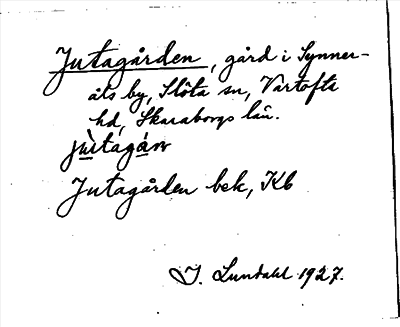 Jutagården, gård i Synner-
åls by, Slöta sn, Vartofta
hd, Skaraborgs län.
jùtagán
Jutagården bek, Kb
I. Lundahl 1927.